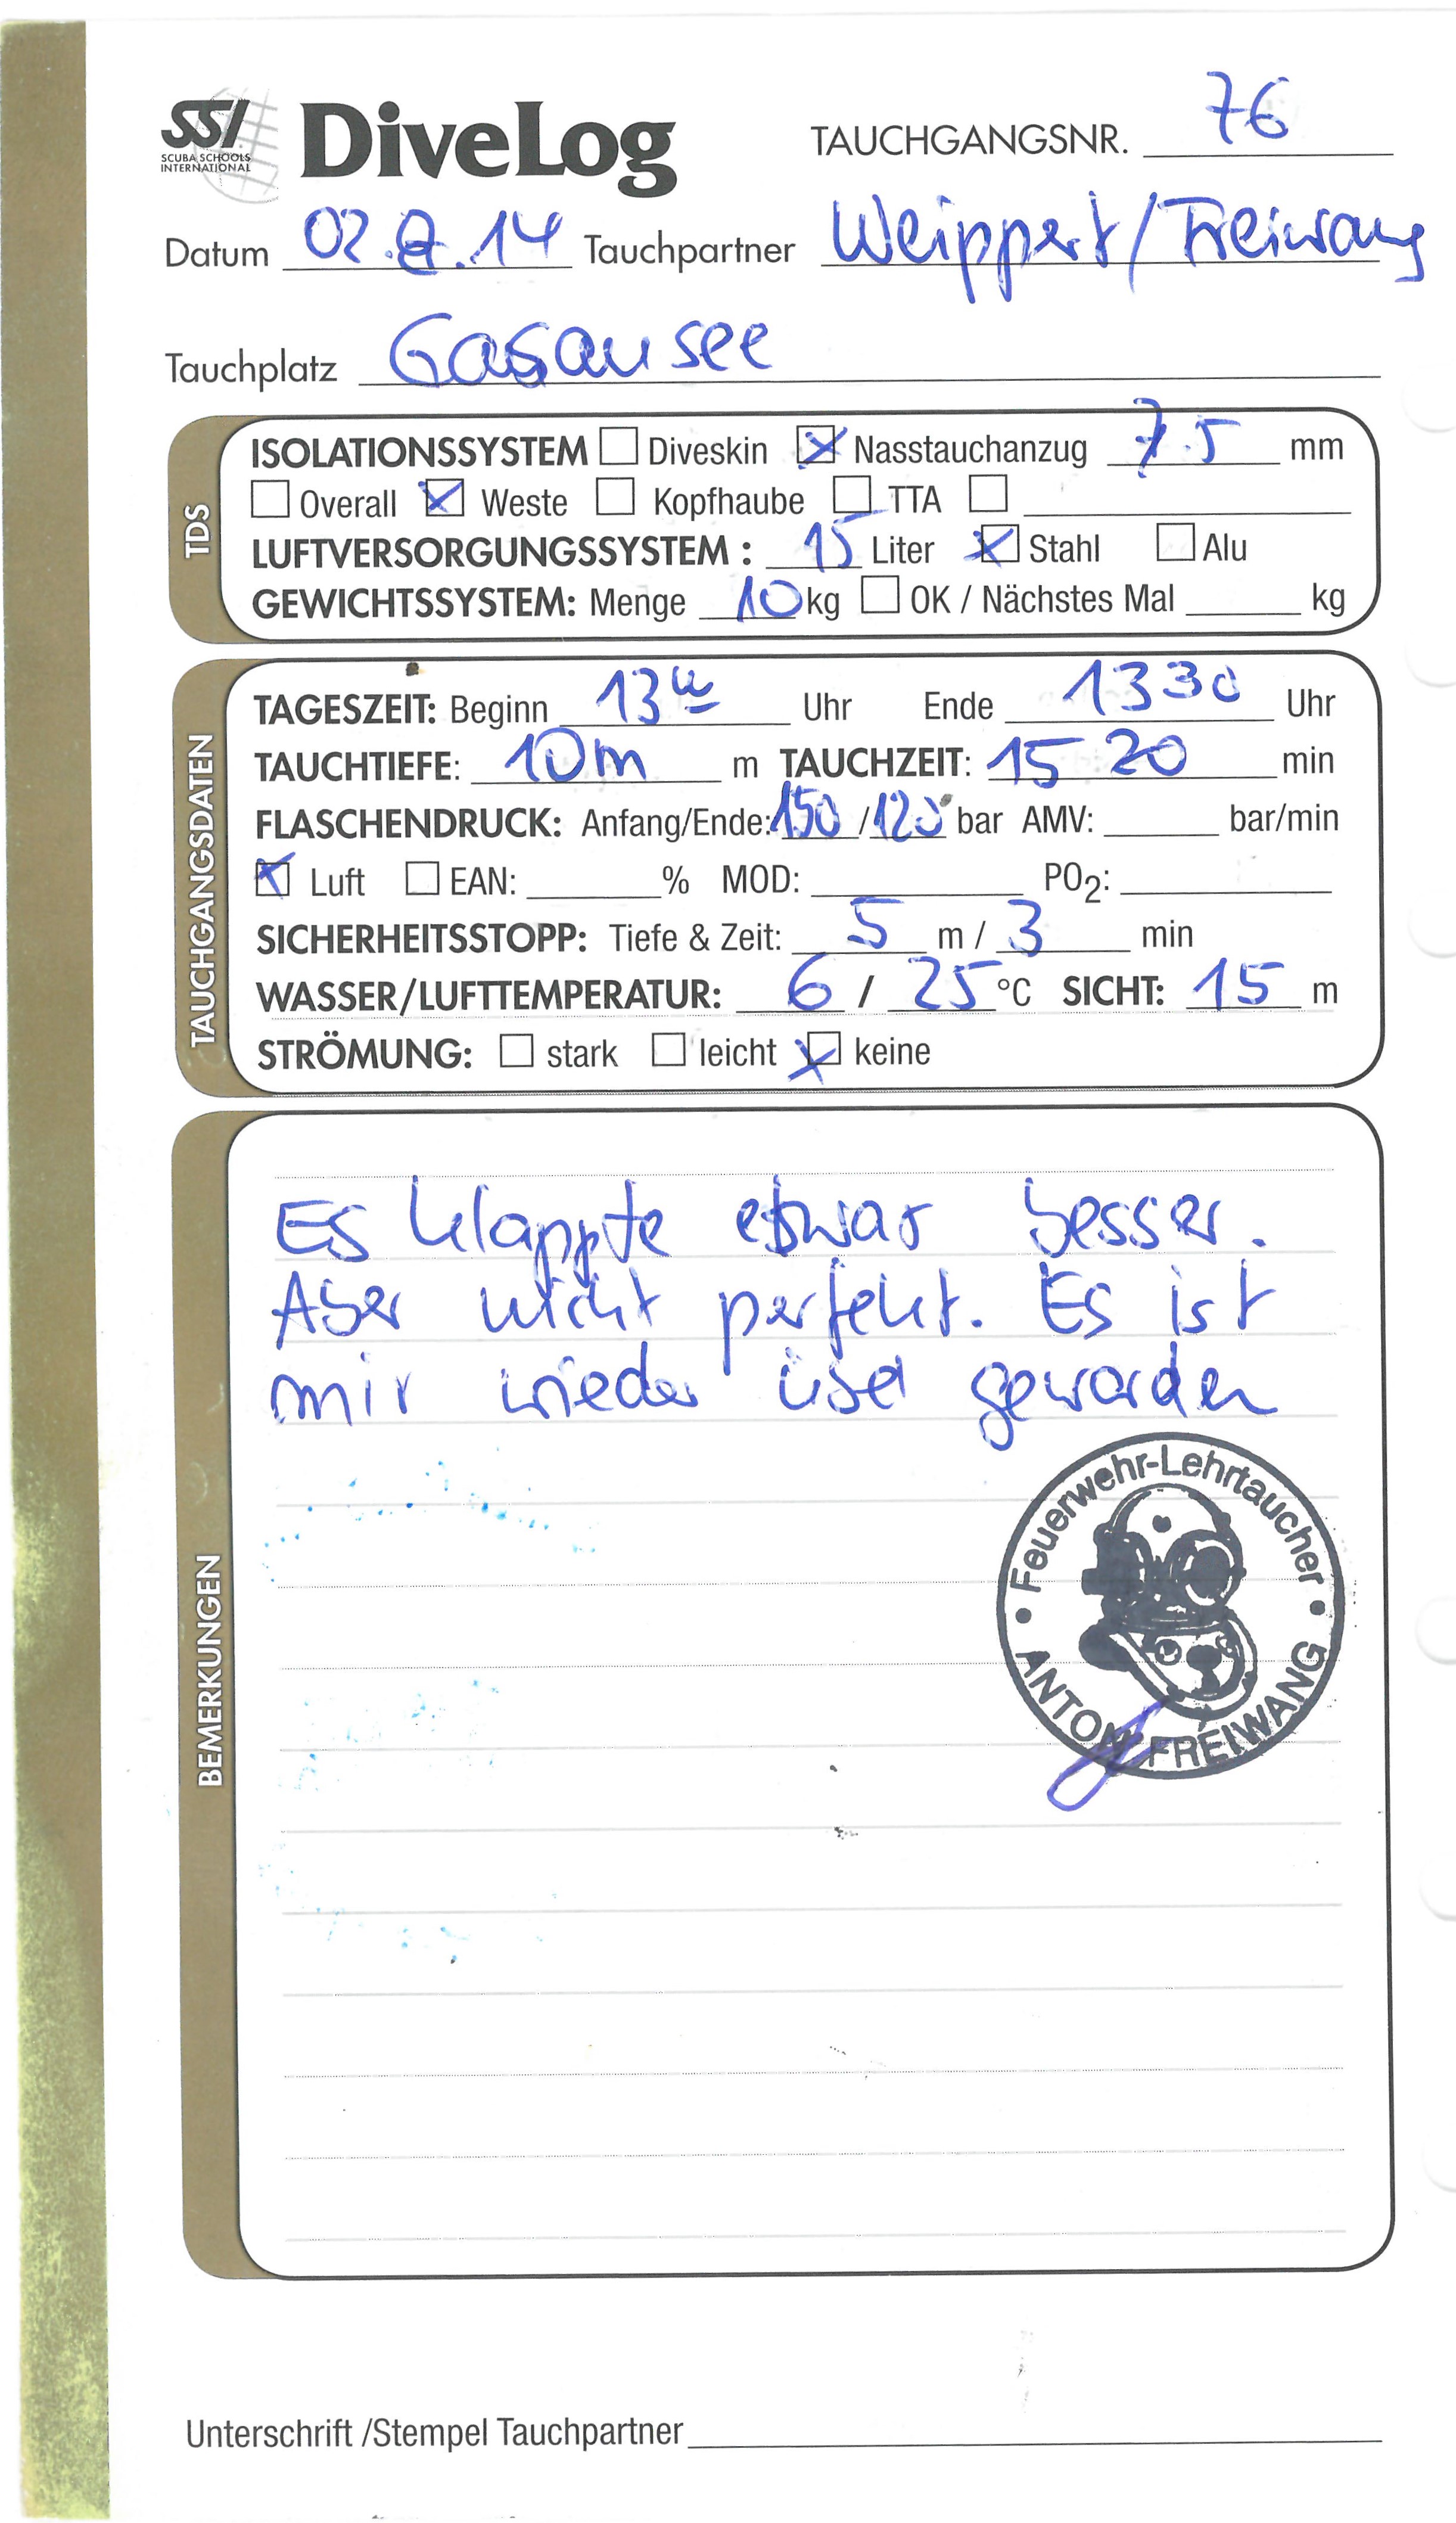 SSI DiveLog TAUCHGANGSNR. 76
SCUBA SCHOOLS
INTERNATIONAL
Datum 02.8.14 Tauchpartner Weippert/Freiwang
Tauchplatz Gosausee
TDS
ISOLATIONSSYSTEM Diveskin Nasstauchanzug 7.5 mm
Overall Weste Kopfhaube TTA
LUFTVERSORGUNGSSYSTEM : 15 Liter Stahl Alu
GEWICHTSSYSTEM: Menge 10 kg OK / Nächstes Mal kg
TAUCHGANGSDATEN
TAGESZEIT: Beginn 13 Uhr Ende 1330 Uhr
TAUCHTIEFE: 10m m TAUCHZEIT: 15 20 min
FLASCHENDRUCK: Anfang/Ende: 150 / 120 bar AMV: bar/min
Luft EAN: % MOD: PO2:
SICHERHEITSSTOPP: Tiefe & Zeit: 5 m / 3 min
WASSER/LUFTTEMPERATUR: 6 / 25 °C SICHT: 15 m
STRÖMUNG: stark leicht keine
BEMERKUNGEN
Es klappte etwas besser.
Aber nicht perfekt. Es ist
mir wieder übel geworden
Feuerwehr-Lehrtaucher
ANTON FREIWANG
Unterschrift /Stempel Tauchpartner